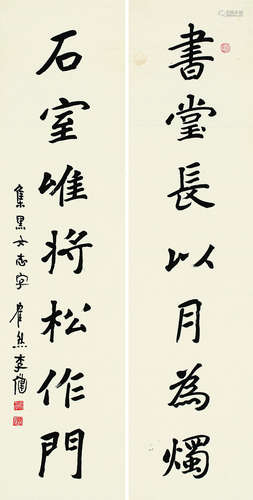 書堂長以月為燭
石室唯將松作門
集黑女志字
李健